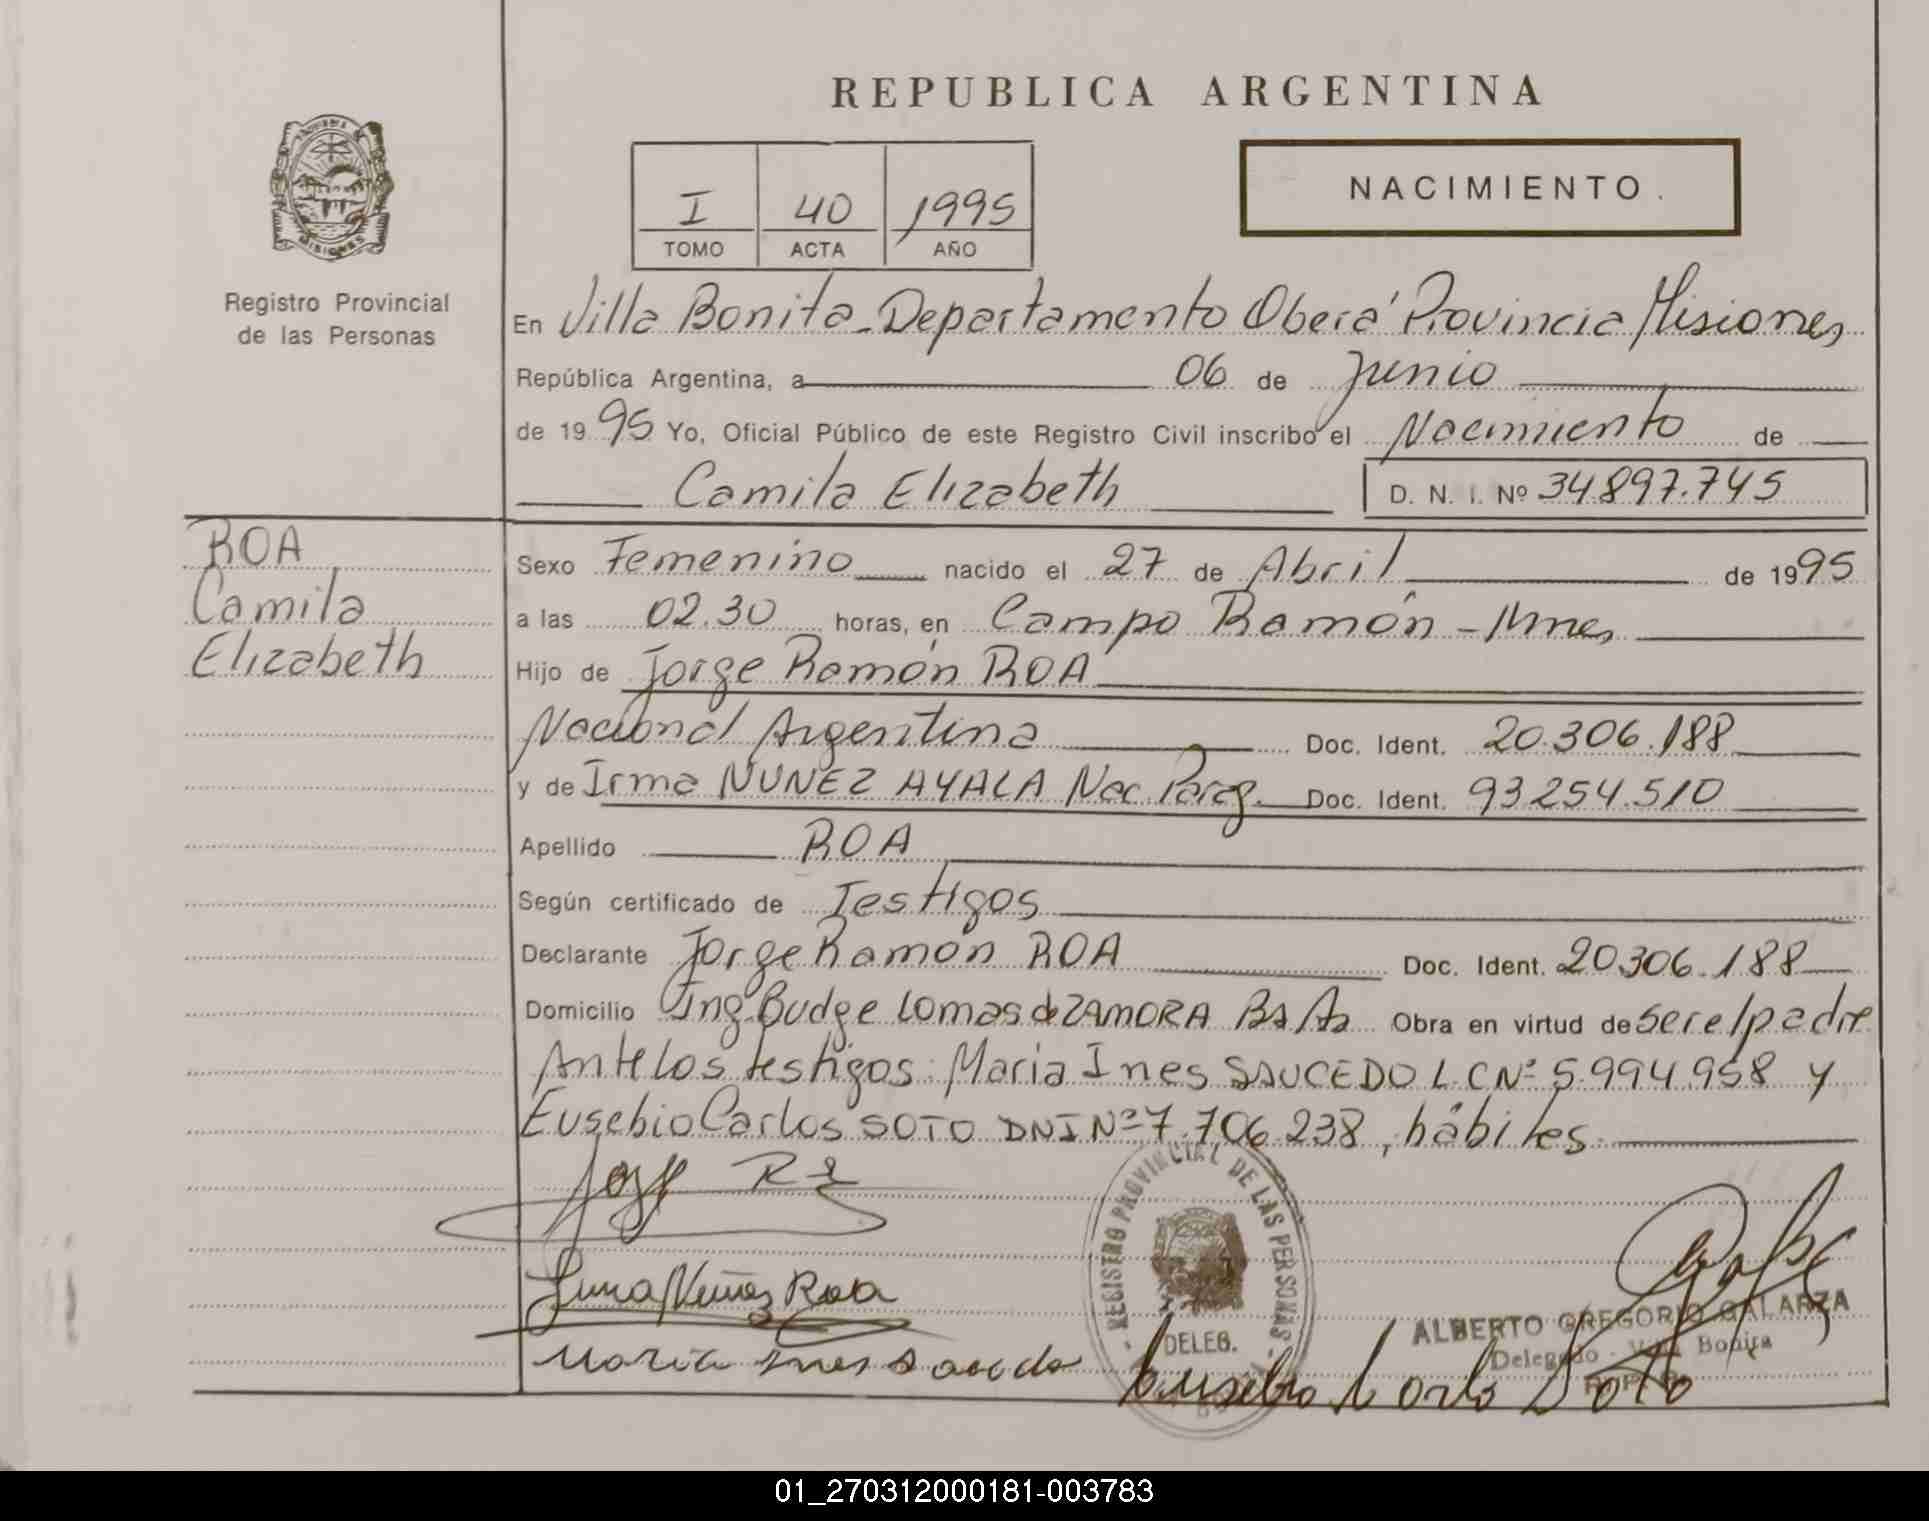 REPUBLICA ARGENTINA
NACIMIENTO.
I 40 1995
TOMO ACTA AÑO
MISIONES
Registro Provincial
de las Personas
En Villa Bonita-Departamento Oberá Provincia Misiones
República Argentina, a 06 de Junio
de 1995 Yo, Oficial Público de este Registro Civil inscribo el Nacimiento de
Camila Elizabeth D. N. I. Nº 34.897.745
ROA
Camila
Elizabeth
Sexo Femenino nacido el 27 de Abril de 1995
a las 02.30 horas, en Campo Ramón - Mnes
Hijo de Jorge Ramón ROA
Nacional Argentina Doc. Ident. 20.306.188
y de Irma NUNEZ AYALA Nac. Parag. Doc. Ident. 93.254.510
Apellido ROA
Según certificado de Testigos
Declarante Jorge Ramón ROA Doc. Ident. 20.306.188
Domicilio Ing. Budge Lomas de ZAMORA Bs As Obra en virtud de ser el padre
Ante los testigos: Maria Ines SAUCEDO L.C Nº 5.994.958 y
Eusebio Carlos SOTO DNI Nº 7.706.238, hábiles.
REGISTRO PROVINCIAL DE LAS PERSONAS
DELEG.
Irma Nuñez Roa
ALBERTO GREGORIO GALARZA
Delegado - Villa Bonita
Maria Ines Saucedo
Eusebio Carlo Soto
01_270312000181-003783